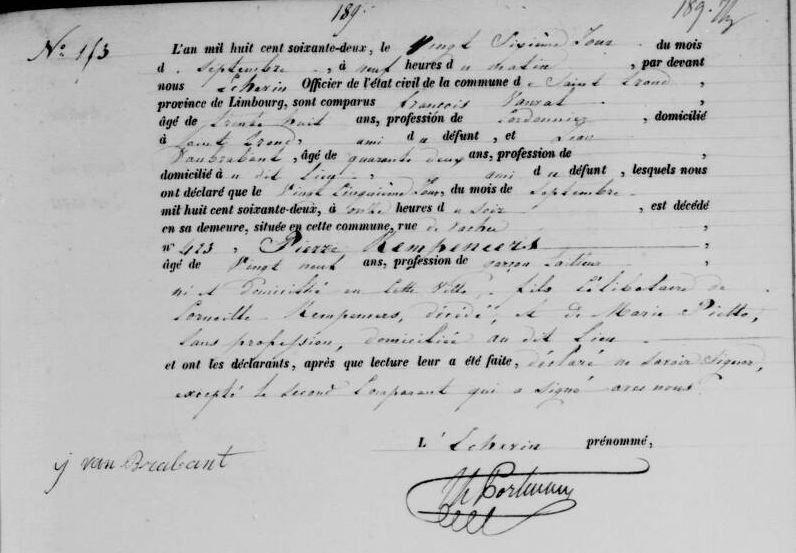 189
189.
N° 153
L'an mil huit cent soixante-deux, le Vingt Sixième Jour du mois
d. Septembre, à neuf heures du matin, par devant
nous Echevin Officier de l'état civil de la commune de Saint Trond,
province de Limbourg, sont comparus François
âgé de trente huit ans, profession de Cordonnier, domicilié
à Saint Trond, ami du défunt, et Jean
Vanbrabant, âgé de quarante deux ans, profession de
domicilié à u dit Lieu, ami du défunt, lesquels nous
ont déclaré que le Vingt Cinquième Jour, du mois de Septembre
mil huit cent soixante-deux, à onze heures du soir, est décédé
en sa demeure, située en cette commune, rue de
n° 423, Pierre Kempeneers
âgé de Vingt neuf ans, profession de garçon
né et domicilié en cette Ville, fils Célibataire de
Corneille Kempeneers, décédé, et de Marie Piette,
Sans profession, domiciliée au dit Lieu
et ont les déclarants, après que lecture leur a été faite, déclaré ne savoir signer,
excepté le second Comparant qui a signé avec nous.
L'Echevin prénommé,
j van Brabant